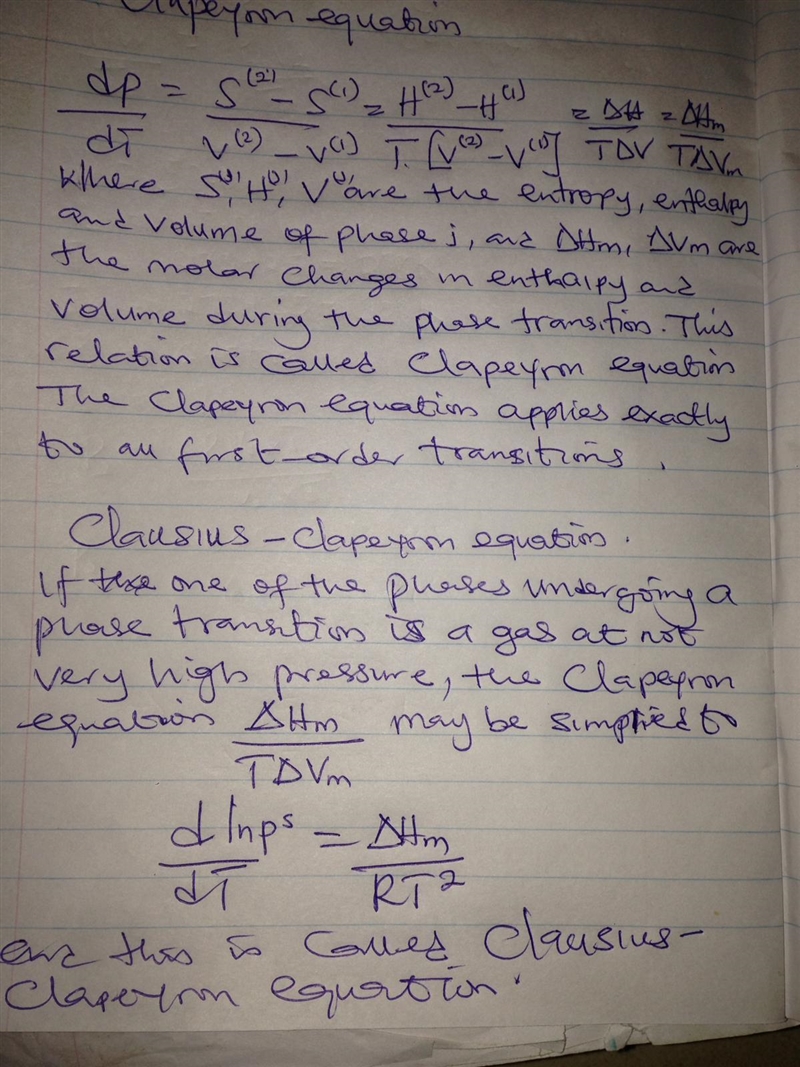 Clapeyron equation
dp/dT = S^(2) - S^(1) / V^(2) - V^(1) = H^(2) - H^(1) / T.[V^(2) - V^(1)] = ΔH / TΔV = ΔHm / TΔVm
Where S^(j), H^(j), V^(j) are the entropy, enthalpy
and volume of phase j, and ΔHm, ΔVm are
the molar changes in enthalpy and
volume during the phase transition. This
relation is called Clapeyron equation
The Clapeyron equation applies exactly
to all first-order transitions.
Clausius-Clapeyron equation.
If one of the phases undergoing a
phase transition is a gas at not
very high pressure, the Clapeyron
equation ΔHm / TΔVm may be simplied to
d lnp^s / dT = ΔHm / RT^2
and this is called Clausius-
Clapeyron equation.